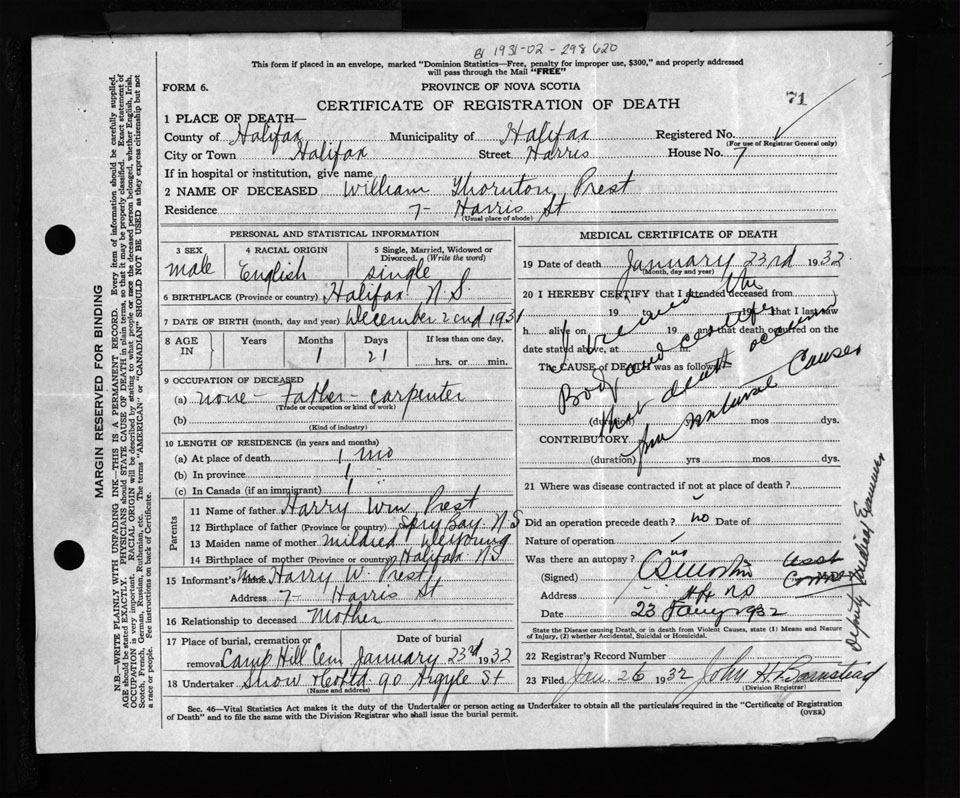 B1 1931-02-298620
This form if placed in an envelope, marked "Dominion Statistics—Free, penalty for improper use, $300," and properly addressed
will pass through the Mail "FREE"
FORM 6.
PROVINCE OF NOVA SCOTIA
CERTIFICATE OF REGISTRATION OF DEATH
71
1 PLACE OF DEATH—
County of Halifax Municipality of Halifax Registered No.
(For use of Registrar General only)
City or Town Halifax Street Harris House No. 7
If in hospital or institution, give name
2 NAME OF DECEASED William Thornton Prest
Residence 7- Harris St
(Usual place of abode)
PERSONAL AND STATISTICAL INFORMATION
3 SEX 4 RACIAL ORIGIN 5 Single, Married, Widowed or
Divorced. (Write the word)
male English single
6 BIRTHPLACE (Province or country) Halifax N.S.
7 DATE OF BIRTH (month, day and year) December 2nd 1931
8 AGE IN Years Months Days If less than one day,
1 21 hrs. or min.
9 OCCUPATION OF DECEASED
(a) none - Father - carpenter
(Trade or occupation or kind of work)
(b)
(Kind of industry)
10 LENGTH OF RESIDENCE (in years and months)
(a) At place of death 1 mo
(b) In province 1
(c) In Canada (if an immigrant) 1
Parents
11 Name of father Harry Wm Prest
12 Birthplace of father (Province or country) Spry Bay N.S
13 Maiden name of mother Mildred DeYoung
14 Birthplace of mother (Province or country) Halifax N.S
15 Informant's Name Mrs Harry W. Prest
Address 7- Harris St
16 Relationship to deceased Mother
17 Place of burial, cremation or removal Date of burial
Camp Hill Cem January 23rd 1932
18 Undertaker Snow & Co Ltd 90 Argyle St
(Name and address)
MEDICAL CERTIFICATE OF DEATH
19 Date of death January 23rd 1932
(Month, day and year)
20 I HEREBY CERTIFY that I attended deceased from
19 to 19 that I last saw
h alive on 19 and that death occurred on the
date stated above, at m.
The CAUSE OF DEATH was as follows
I viewed the
Body and certify
that death occurred
from natural Causes
(duration) yrs mos dys.
CONTRIBUTORY
(duration) yrs mos dys.
21 Where was disease contracted if not at place of death?
Did an operation precede death? no Date of
Nature of operation
Was there an autopsy? no
(Signed)
Address Hfx NS
Date 23 Jany 1932
Deputy Medical Examiner
State the Disease causing Death, or in death from Violent Causes, state (1) Means and Nature
of Injury, (2) whether Accidental, Suicidal or Homicidal.
22 Registrar's Record Number
23 Filed Jan. 26 1932 John H. Barnstead
(Division Registrar)
Sec. 46—Vital Statistics Act makes it the duty of the Undertaker or person acting as Undertaker to obtain all the particulars required in the "Certificate of Registration
of Death" and to file the same with the Division Registrar who shall issue the burial permit.
(OVER)
MARGIN RESERVED FOR BINDING
N.B.—WRITE PLAINLY WITH UNFADING INK—THIS IS A PERMANENT RECORD. Every item of information should be carefully supplied.
AGE should be stated EXACTLY. PHYSICIANS should STATE CAUSE OF DEATH in plain terms, so that it may be properly classified. Exact statement of
OCCUPATION is very important. RACIAL ORIGIN will be described by stating to what people or race the deceased person belonged, whether English, Irish,
Scotch, French, German, Russian, Ruthenian, etc. The terms "AMERICAN" or "CANADIAN" SHOULD NOT BE USED as they express citizenship but not
a race or people. See instructions on back of Certificate.